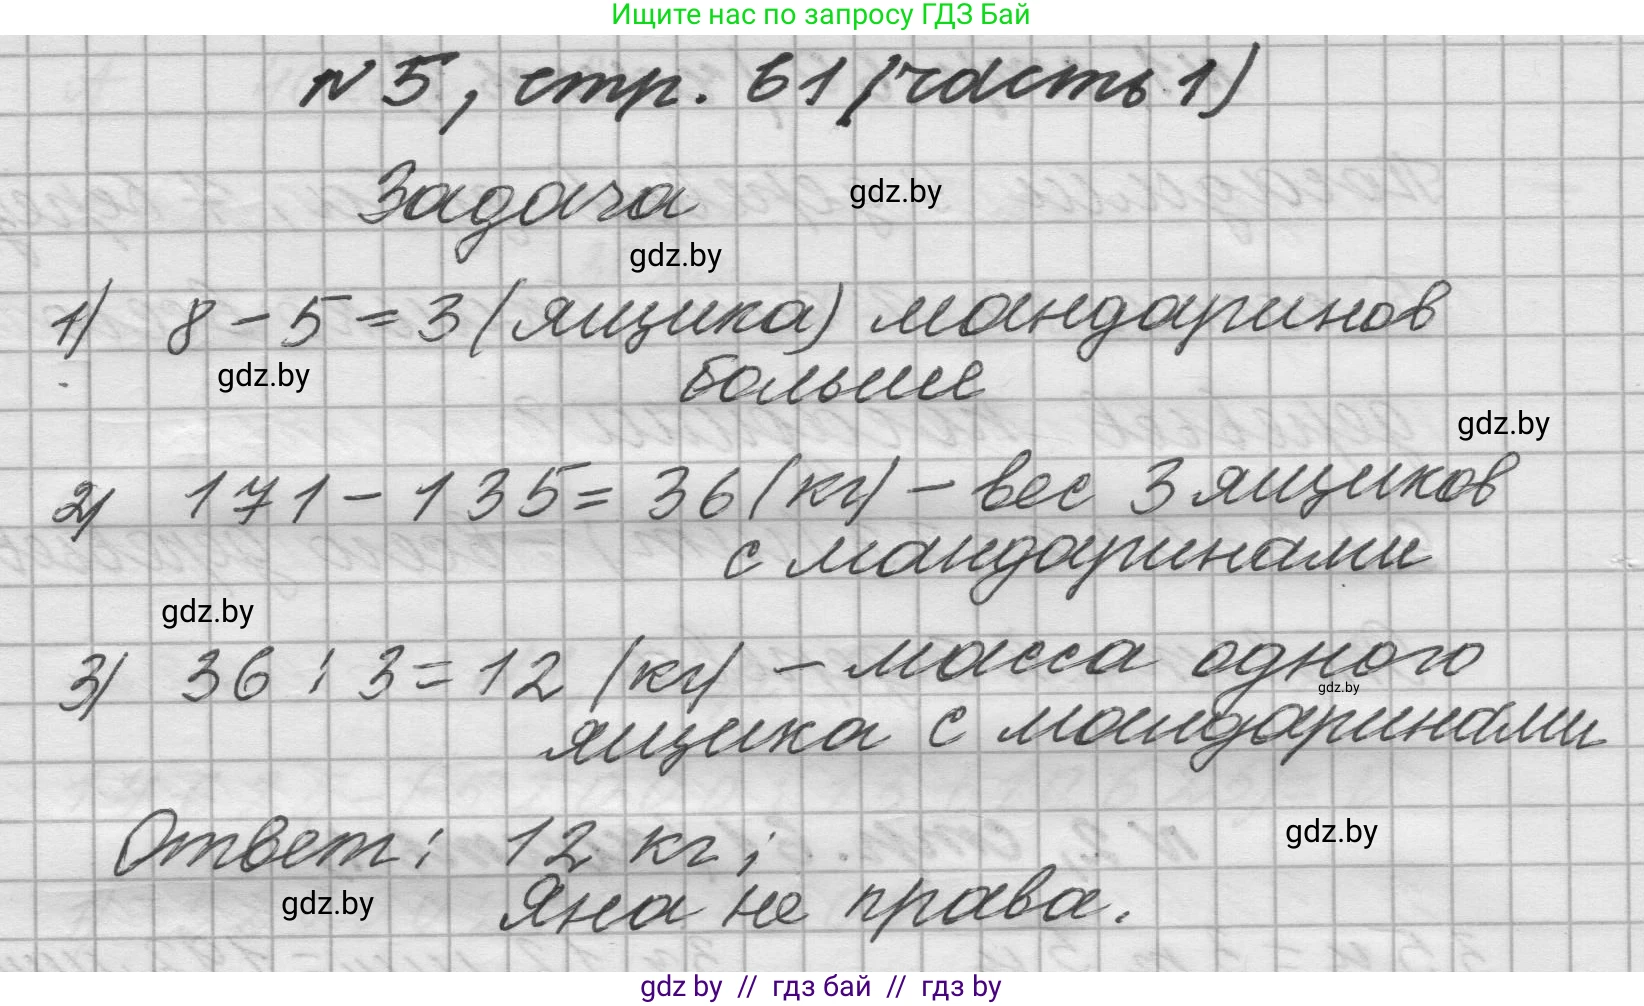 Ищите нас по запросу ГДЗ Бай
№ 5, стр. 61 (часть 1)
Задача
gdz.by
gdz.by
1) 8 - 5 = 3 (ящика) мандаринов
больше
gdz.by
gdz.by
2) 171 - 135 = 36 (кг) - вес 3 ящиков
с мандаринами
gdz.by
3) 36 : 3 = 12 (кг) - масса одного
gdz.by
ящика с мандаринами
Ответ: 12 кг;
gdz.by
Яна не права.
gdz.by
gdz by // гдз бай // гдз by